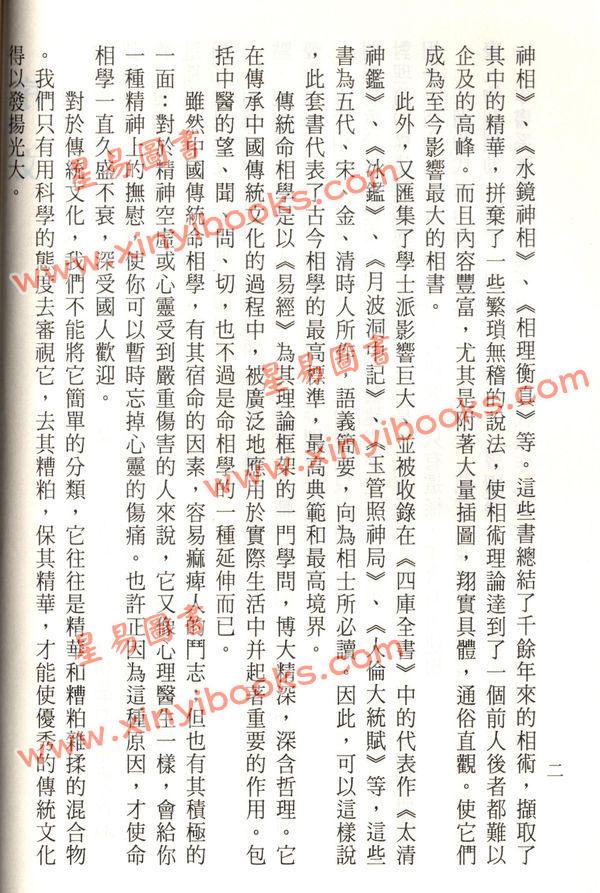 神相》、《水鏡神相》、《相理衡真》等。這些書總結了千餘年來的相術，擷取了
其中的精華，拼棄了一些繁瑣無稽的說法，使相術理論達到了一個前人後者都難以
企及的高峰。而且內容豐富，尤其是附著大量插圖，翔實具體，通俗直觀。使它們
成為至今影響最大的相書。
此外，又匯集了學士派影響巨大，並被收錄在《四庫全書》中的代表作《太清
神鑑》、《冰鑑》、《月波洞中記》、《玉管照神局》、《人倫大統賦》等，這些
書為五代、宋、金、清時人所作，語義簡要，向為相士所必讀。因此，可以這樣說
，此套書代表了古今相學的最高標準，最高典範和最高境界。
傳統命相學是以《易經》為其理論框架的一門學問，博大精深，深含哲理。它
在傳承中國傳統文化的過程中，被廣泛地應用於實際生活中并起著重要的作用。包
括中醫的望、聞、問、切，也不過是命相學的一種延伸而已。
雖然中國傳統命相學，有其宿命的因素，容易痲痺人的鬥志，但也有其積極的
一面：對於精神空虛或心靈受到嚴重傷害的人來說，它又像心理醫生一樣，會給你
一種精神上的撫慰，使你可以暫時忘掉心靈的傷痛。也許正因為這種原因，才使命
相學一直久盛不衰，深受國人歡迎。
對於傳統文化，我們不能將它簡單的分類，它往往是精華和糟粕雜揉的混合物
。我們只有用科學的態度去審視它，去其糟粕，保其精華，才能使優秀的傳統文化
得以發揚光大。
二
星易圖書
www.xinyibooks.com
星易圖書
www.xinyibooks.com
星易圖書
www.xinyibooks.com